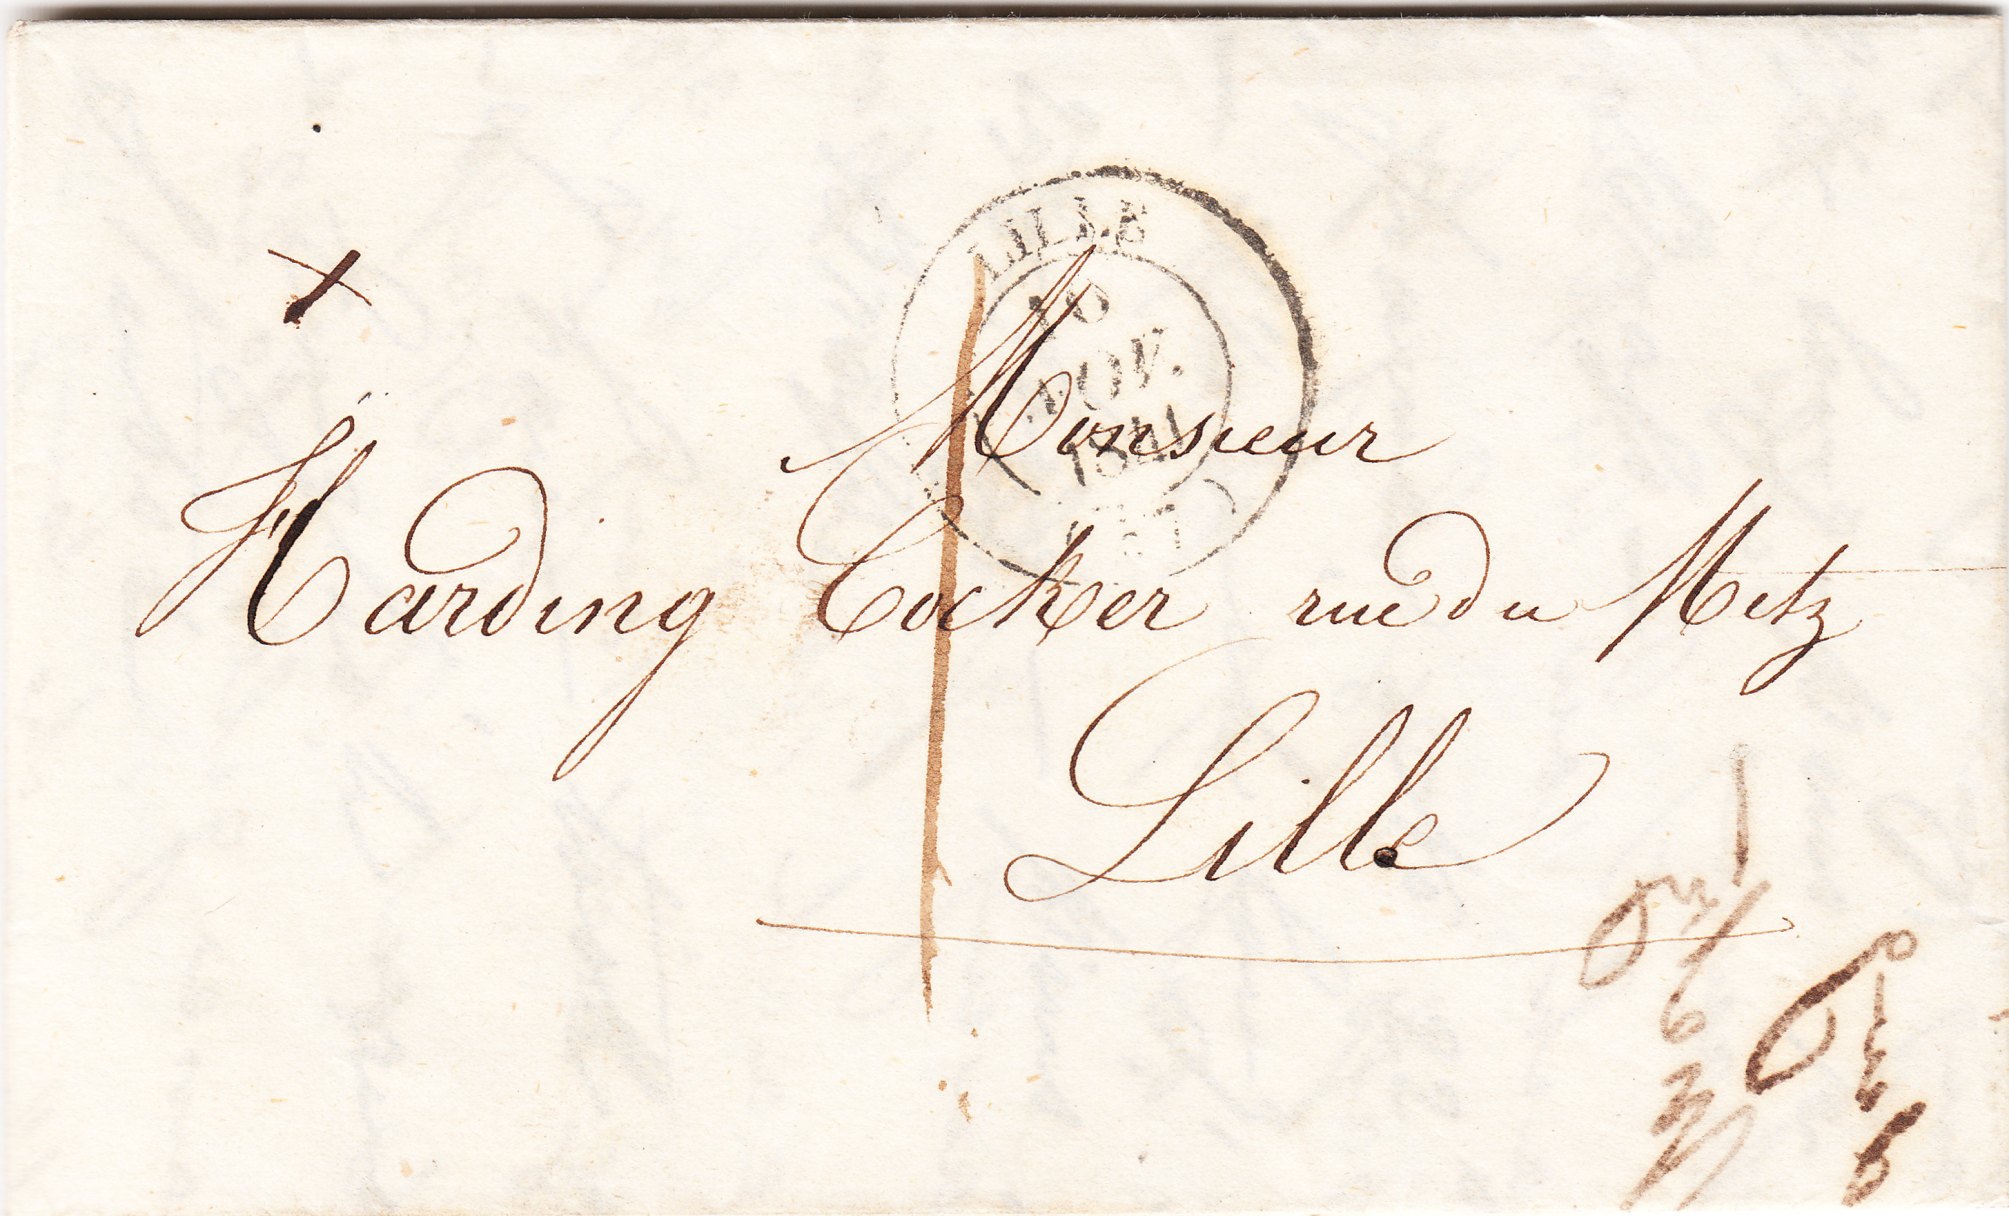 LILLE
10
NOV.
1841
(57)
Monsieur
Harding Cocker rue du Metz
Lille